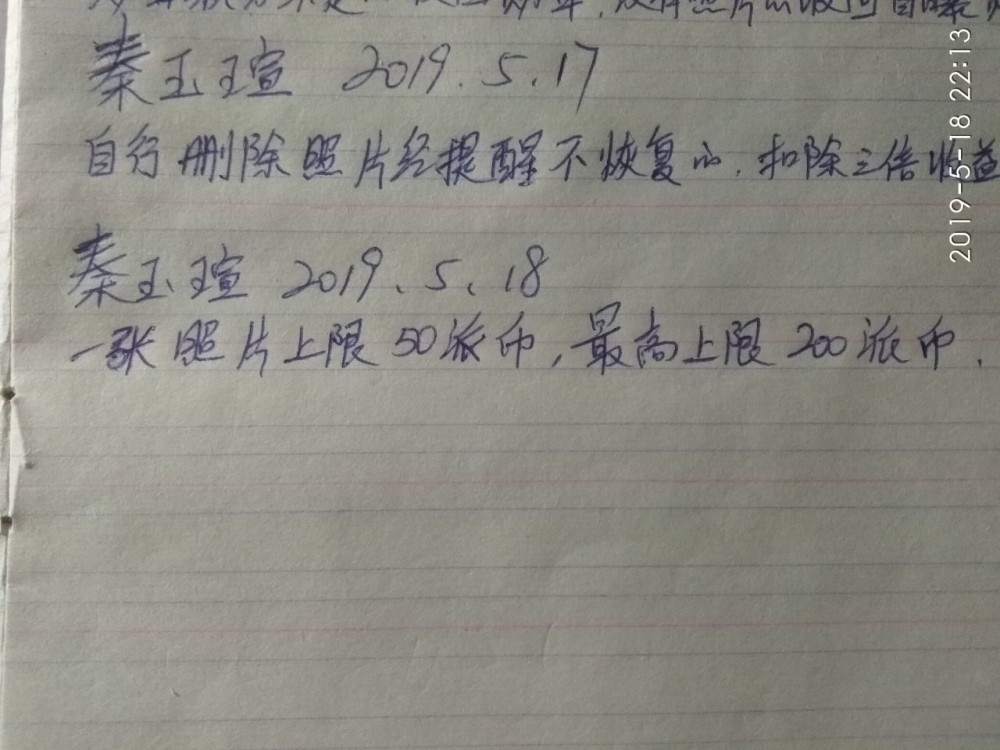 秦玉瑄 2019.5.17
自行删除照片经提醒不恢复的.扣除三倍收益
秦玉瑄 2019、5、18
一张照片上限50派币,最高上限200派币.
2019-5-18 22:13